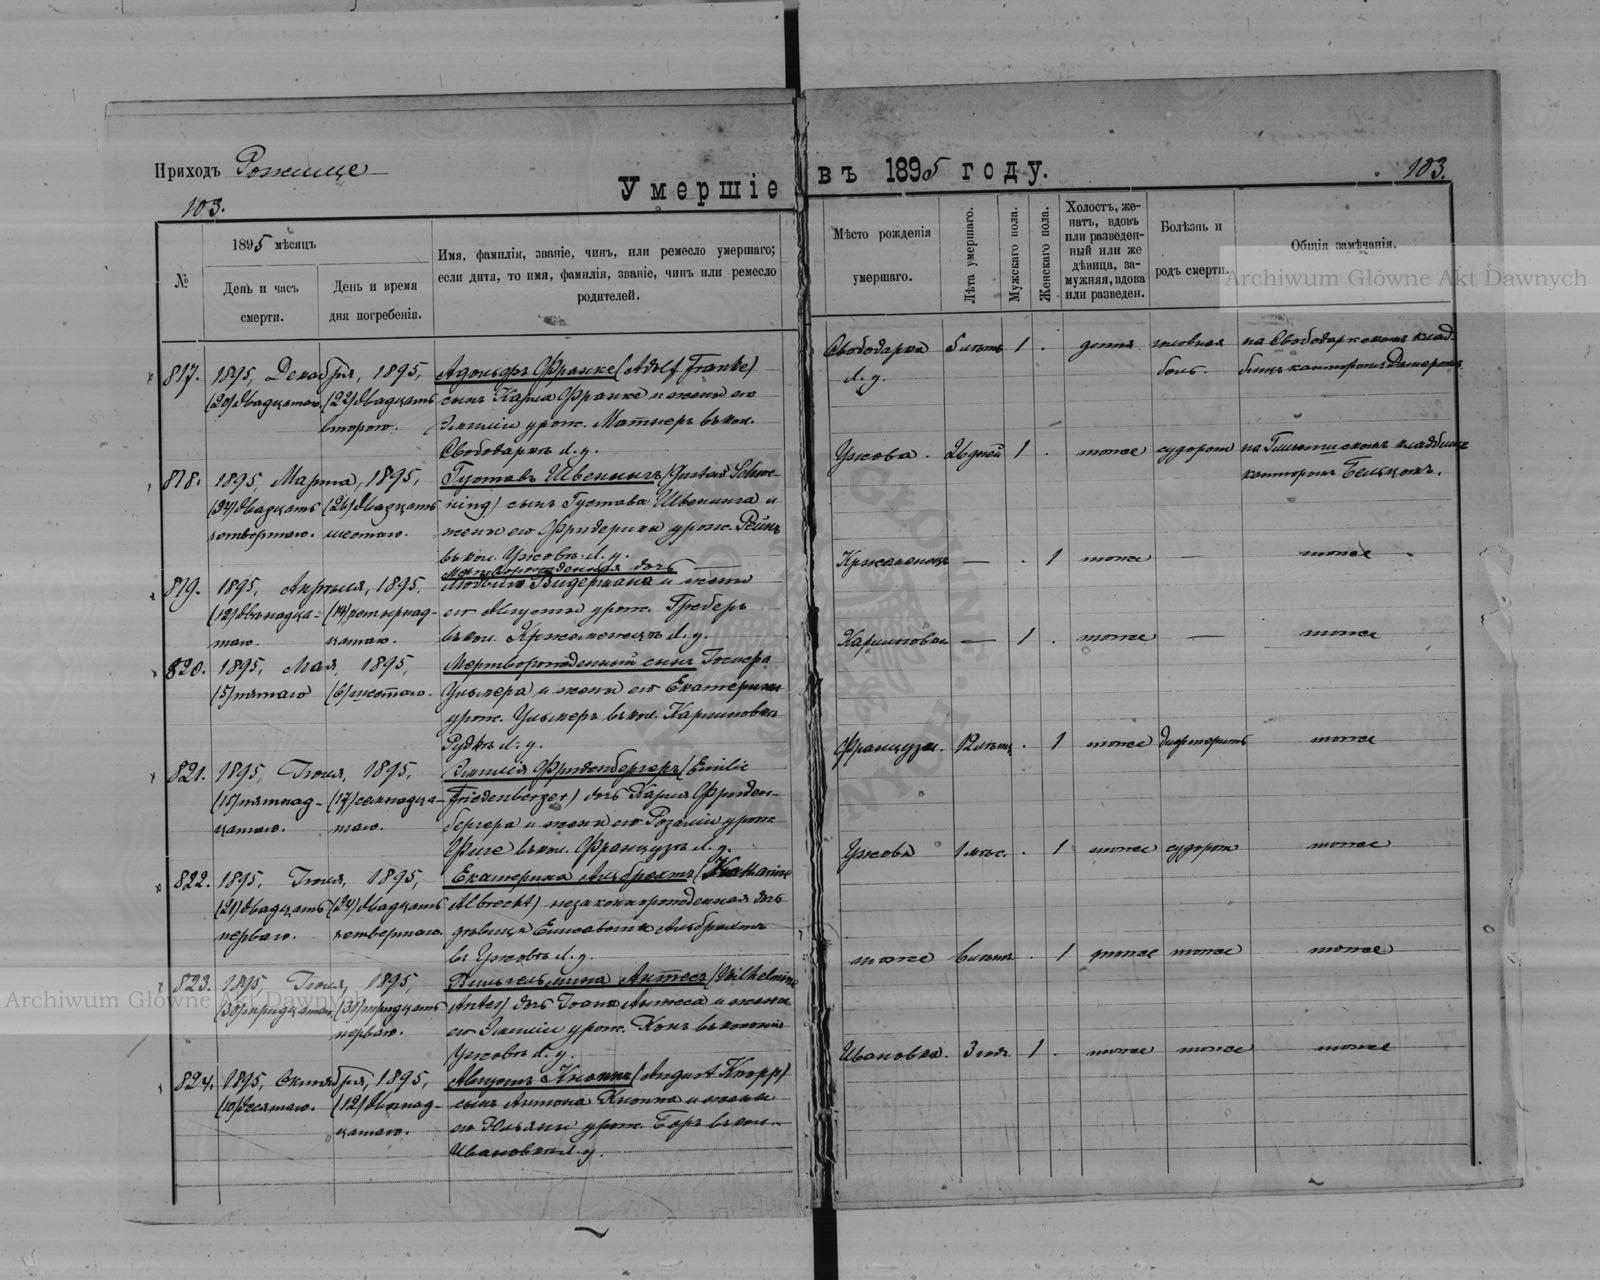 Приходъ Рожище
103.
Умершіе
въ 1895 году.
103.
№
1895 мѣсяцъ
День и часъ
смерти.
День и время
дня погребенія.
Имя, фамилія, званіе, чинъ, или ремесло умершаго;
если дитя, то имя, фамилія, званіе, чинъ или ремесло
родителей.
Мѣсто рожденія
умершаго.
Лѣта умершаго.
Мужскаго пола.
Женскаго пола.
Холостъ, же-
натъ, вдовъ
или разведен-
ный или же
дѣвица, за-
мужняя, вдова
или разведен.
Болѣзнь и
родъ смерти.
Общія замѣчанія.
Archiwum Główne Akt Dawnych
817. 1895, Декабря, 1895,
(20) двадцатаго. (22) двадцать
второго.
Адольфъ Франке (Adolf Franke)
сынъ Карла Франке и жены его
Эмиліи урож. Матнеръ въ кол.
Свободаркѣ Л. у.
Свободарка
Л. у.
5 лѣтъ 1 .
дитя
головная
боль.
на Свободарскомъ клад-
878. 1895, Марта, 1895,
(24) двадцать
четвертаго.
(26) двадцать
шестаго.
Густавъ Швенингъ (Gustav Schwe-
ning) сынъ Густава Швенинга и
жены его Фридерики урож. Рейнъ
въ кол. Ужовѣ Л. у.
Ужова . 26 дней 1 . тоже судорож
канторомъ Бельцомъ.
819. 1895, Апрѣля, 1895,
(12) двѣнадца-
таго.
(14) четырнад-
цатаго.
Мертворожденная дочь
Людвига Бидермана и жены
его Августы урож. Греберъ
въ кол. Кржеменецъ Л. у.
Кржеменецъ — . 1 тоже — тоже
820. 1895, Мая, 1895,
(5) пятаго (6) шестаго.
Мертворожденный сынъ Іосифа
Ульмера и жены его Екатерины
урож. Ульмеръ въ кол. Карлиновкѣ
Рудкѣ Л. у.
Карлиновка — 1 . тоже — тоже
821. 1895, Іюля, 1895,
(15) пятнад-
цатаго.
(17) семнадца-
таго.
Эмилія Фриденбергеръ (Emilie
Friedenberger) дочь Карла Фриден-
бергера и жены его Розаліи урож.
Фиге въ кол. Французѣ Л. у.
Французы. 12 лѣтъ . 1 тоже дифтеритъ тоже
822. 1895, Іюля, 1895,
(21) двадцать
перваго.
(24) двадцать
четвертаго.
Екатерина Альбрехтъ (Katharine
Albrecht) незаконнорожденная дочь
дѣвицы Елисаветы Альбрехтъ
въ Ужовѣ Л. у.
Ужова 1 мѣс. . 1 тоже судорож тоже
823. 1895, Іюля, 1895,
(30) тридцатаго. (31) тридцать
перваго.
Вильгельмина Антесъ (Wilhelmine
Antes) дочь Іоана Антеса и жены
его Эмиліи урож. Конъ въ колоніи
Ужовѣ Л. у.
тоже . 1 тоже тоже тоже
Archiwum Główne Akt Dawnych
824. 1895, Октября, 1895,
(10) десятаго. (12) двѣнад-
цатаго.
Августъ Кноппъ (August Knopp)
сынъ Антона Кноппа и жены
его Юльяны урож. Боръ въ кол.
Ивановкѣ Л. у.
Ивановка. 3 год. 1 . тоже тоже тоже